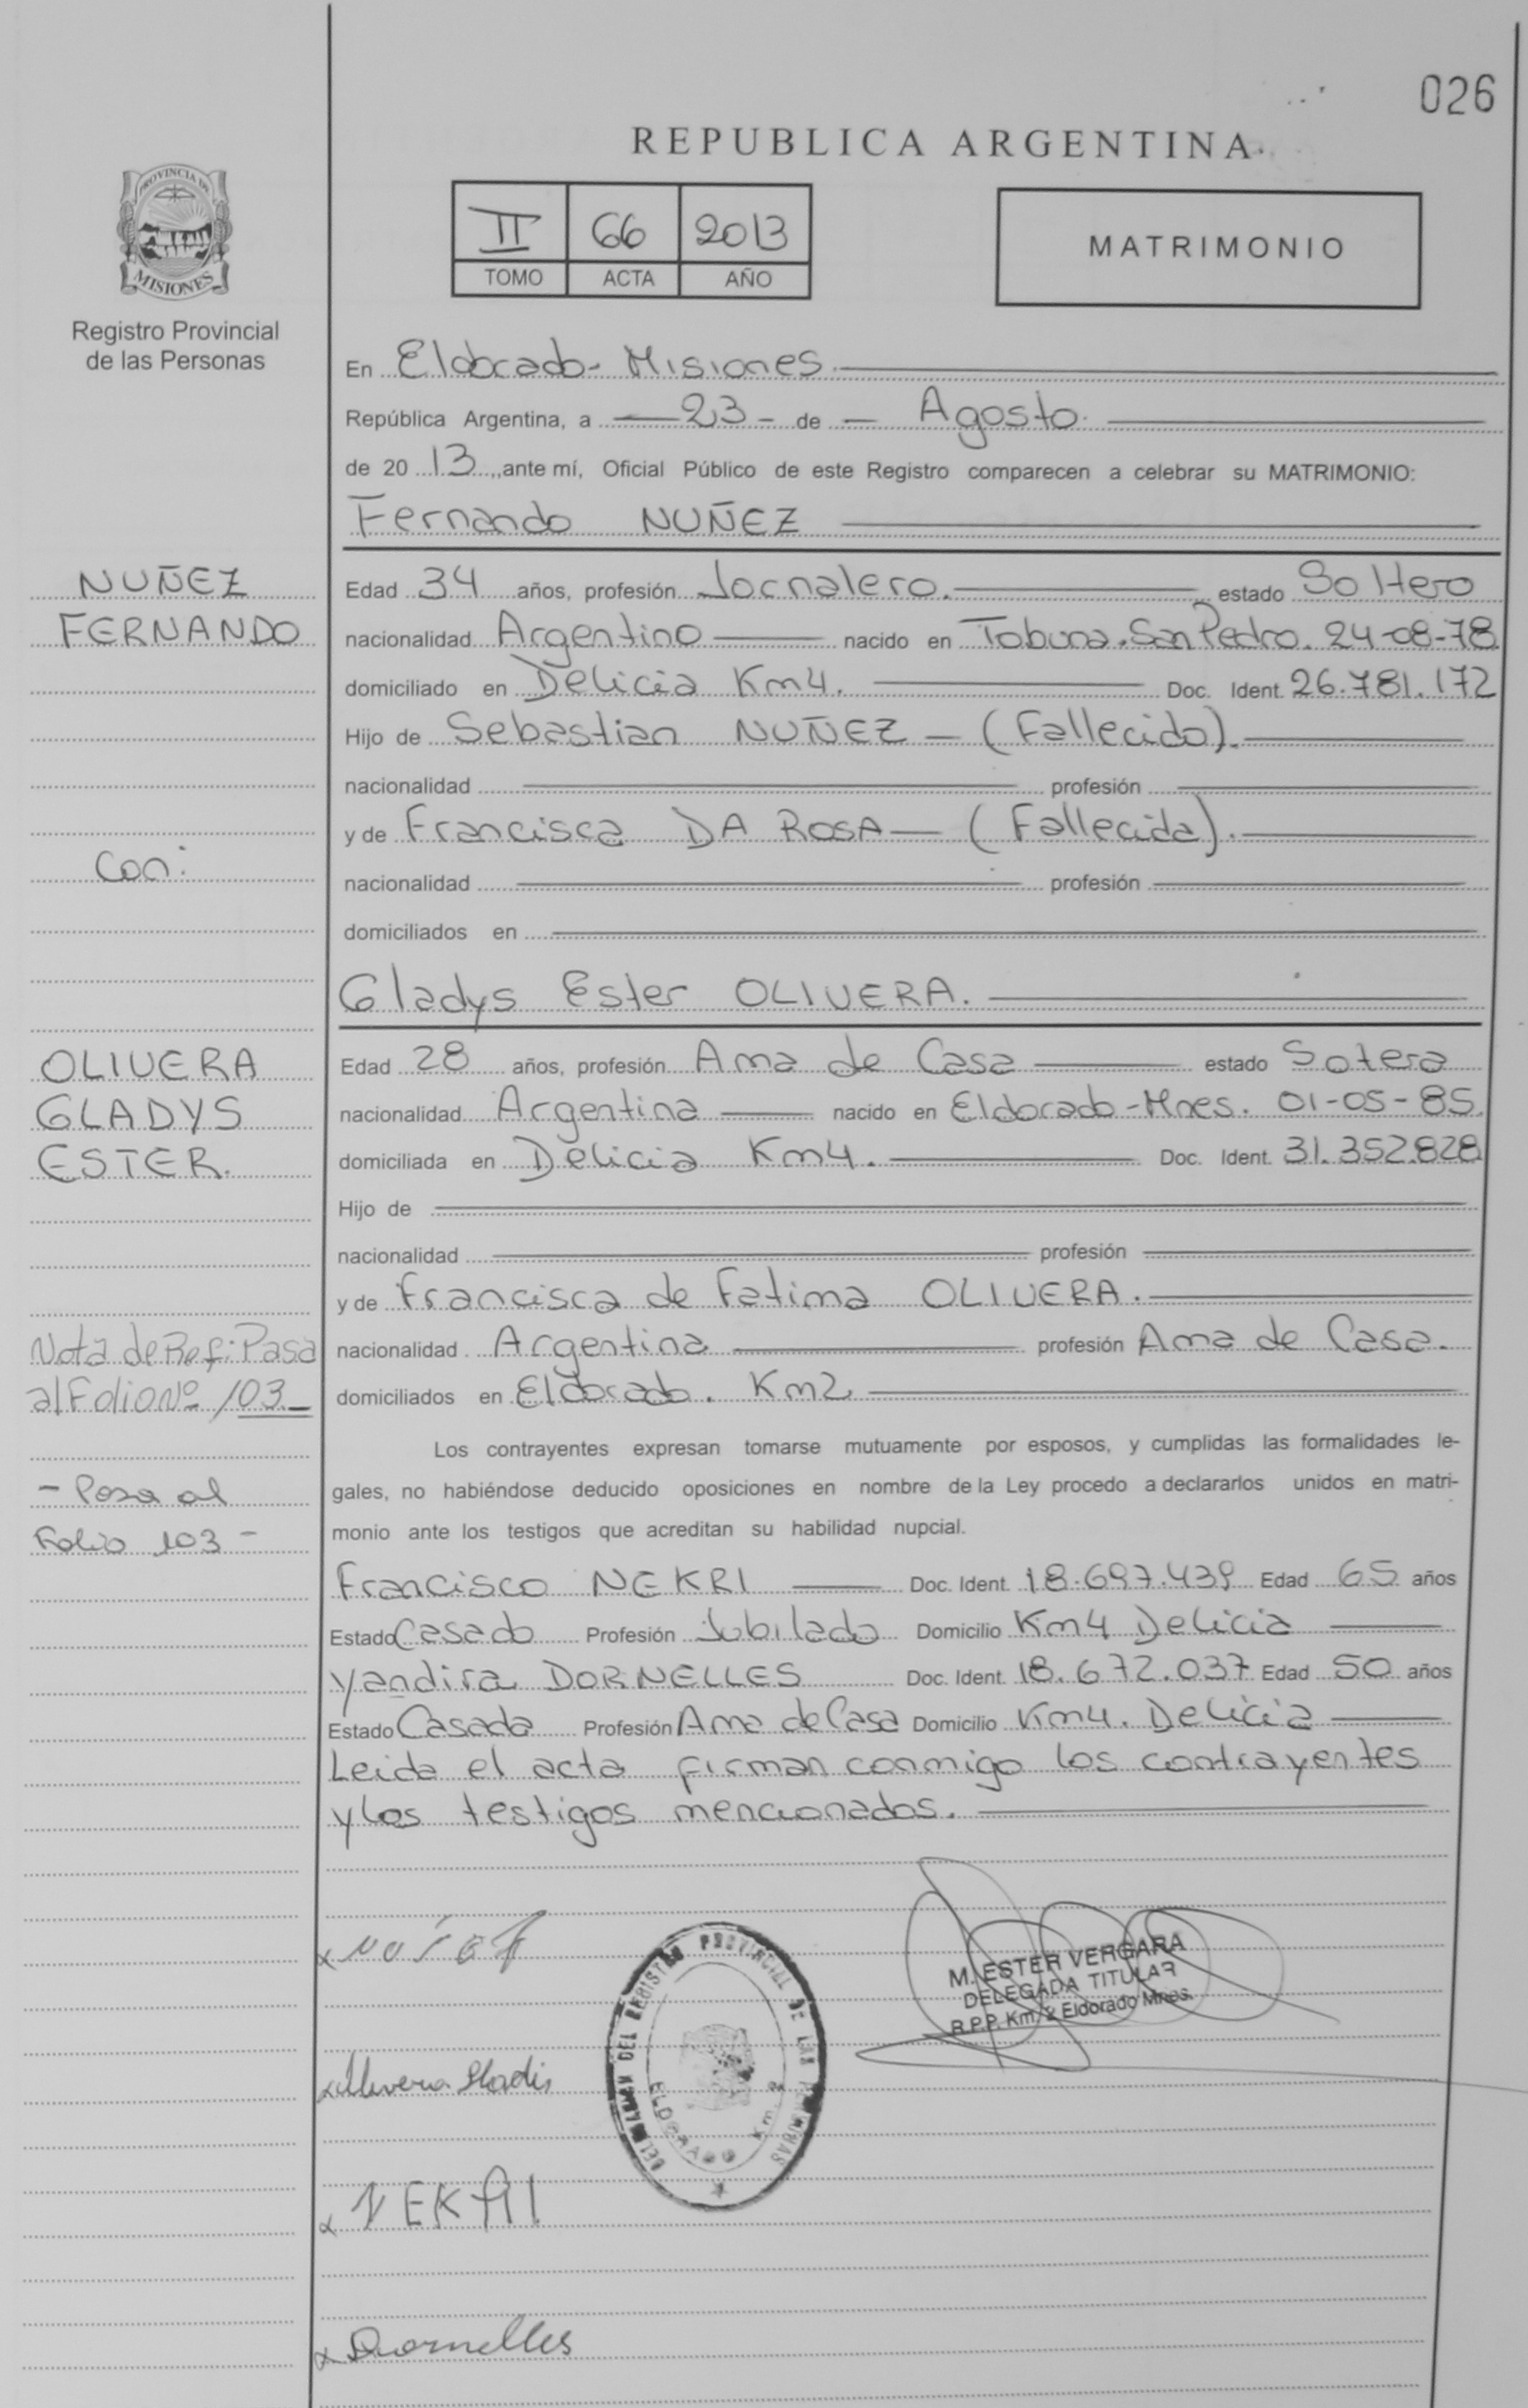 026
REPUBLICA ARGENTINA
PROVINCIA DE
MISIONES
Registro Provincial
de las Personas
II 66 2013
TOMO ACTA AÑO
MATRIMONIO
En Eldorado - Misiones.
República Argentina, a 23 - de Agosto
de 20 13, ante mí, Oficial Público de este Registro comparecen a celebrar su MATRIMONIO:
Fernando NUÑEZ
NUÑEZ
FERNANDO
Con:
Edad 34 años, profesión Jornalero. estado Soltero
nacionalidad Argentino nacido en Tobuna. San Pedro. 24-08-78
domiciliado en Delicia Km4. Doc. Ident. 26.781.172
Hijo de Sebastian NUÑEZ - (Fallecido).
nacionalidad profesión
y de Francisca DA ROSA - (Fallecida).
nacionalidad profesión
domiciliados en
Gladys Ester OLIVERA.
OLIVERA
GLADYS
ESTER.
Edad 28 años, profesión Ama de Casa estado Sotera
nacionalidad Argentina nacido en Eldorado - Mnes. 01-05-85
domiciliada en Delicia Km4. Doc. Ident. 31.352.828
Hijo de
nacionalidad profesión
y de Francisca de Fatima OLIVERA.
nacionalidad Argentina profesión Ama de Casa.
domiciliados en Eldorado. Km2
Nota de Ref: Pasa
al Folio Nº 103.-
- Pasa al
Folio 103 -
Los contrayentes expresan tomarse mutuamente por esposos, y cumplidas las formalidades le-
gales, no habiéndose deducido oposiciones en nombre de la Ley procedo a declararlos unidos en matri-
monio ante los testigos que acreditan su habilidad nupcial.
Francisco NEKRI Doc. Ident. 18.697.439 Edad 65 años
Estado Casado Profesión Jubilado Domicilio Km4 Delicia
Yandira DORNELLES Doc. Ident. 18.672.037 Edad 50 años
Estado Casada Profesión Ama de Casa Domicilio Km4. Delicia
Leida el acta firman conmigo los contrayentes
y los testigos mencionados.
M. ESTER VERGARA
DELEGADA TITULAR
R.P.P. Km. 2 Eldorado Mnes.
DEL REGISTRO PROVINCIAL DE LAS PERSONAS
ELDORADO Km. 2
NEKRI
Dornelles